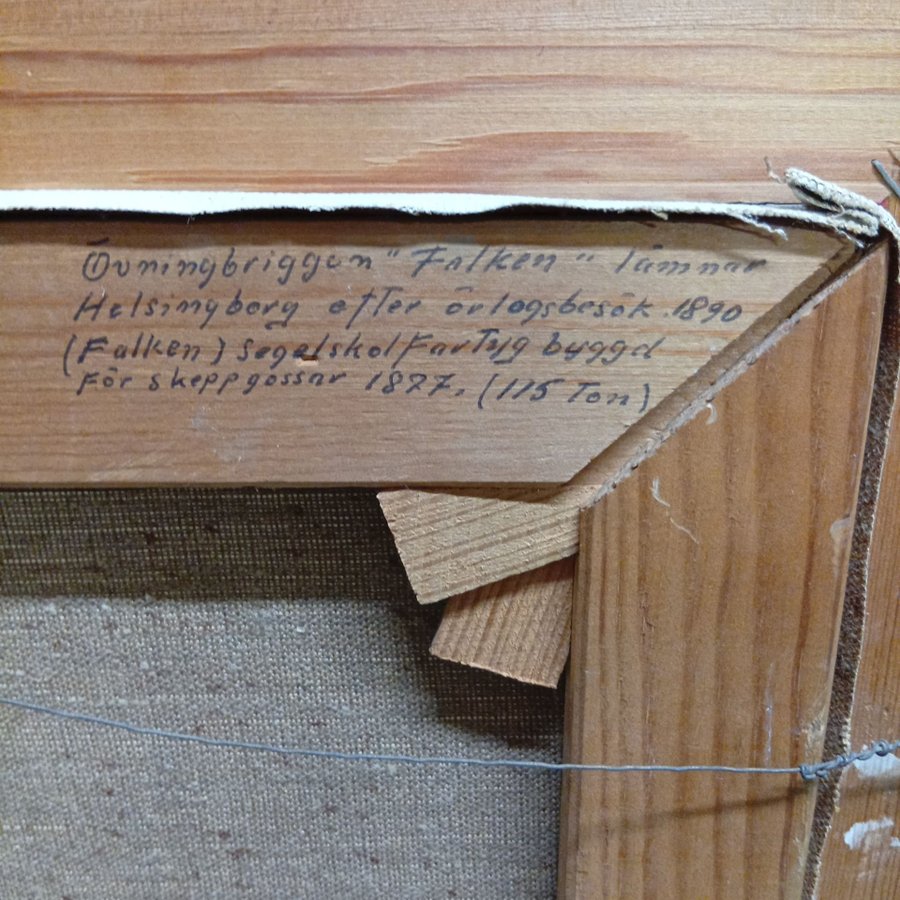 Övningbriggen "Falken" lämnar
Helsingborg efter örlogsbesök. 1890
(Falken) segelskolfartyg byggd
För skeppgossar 1877. (115 Ton)